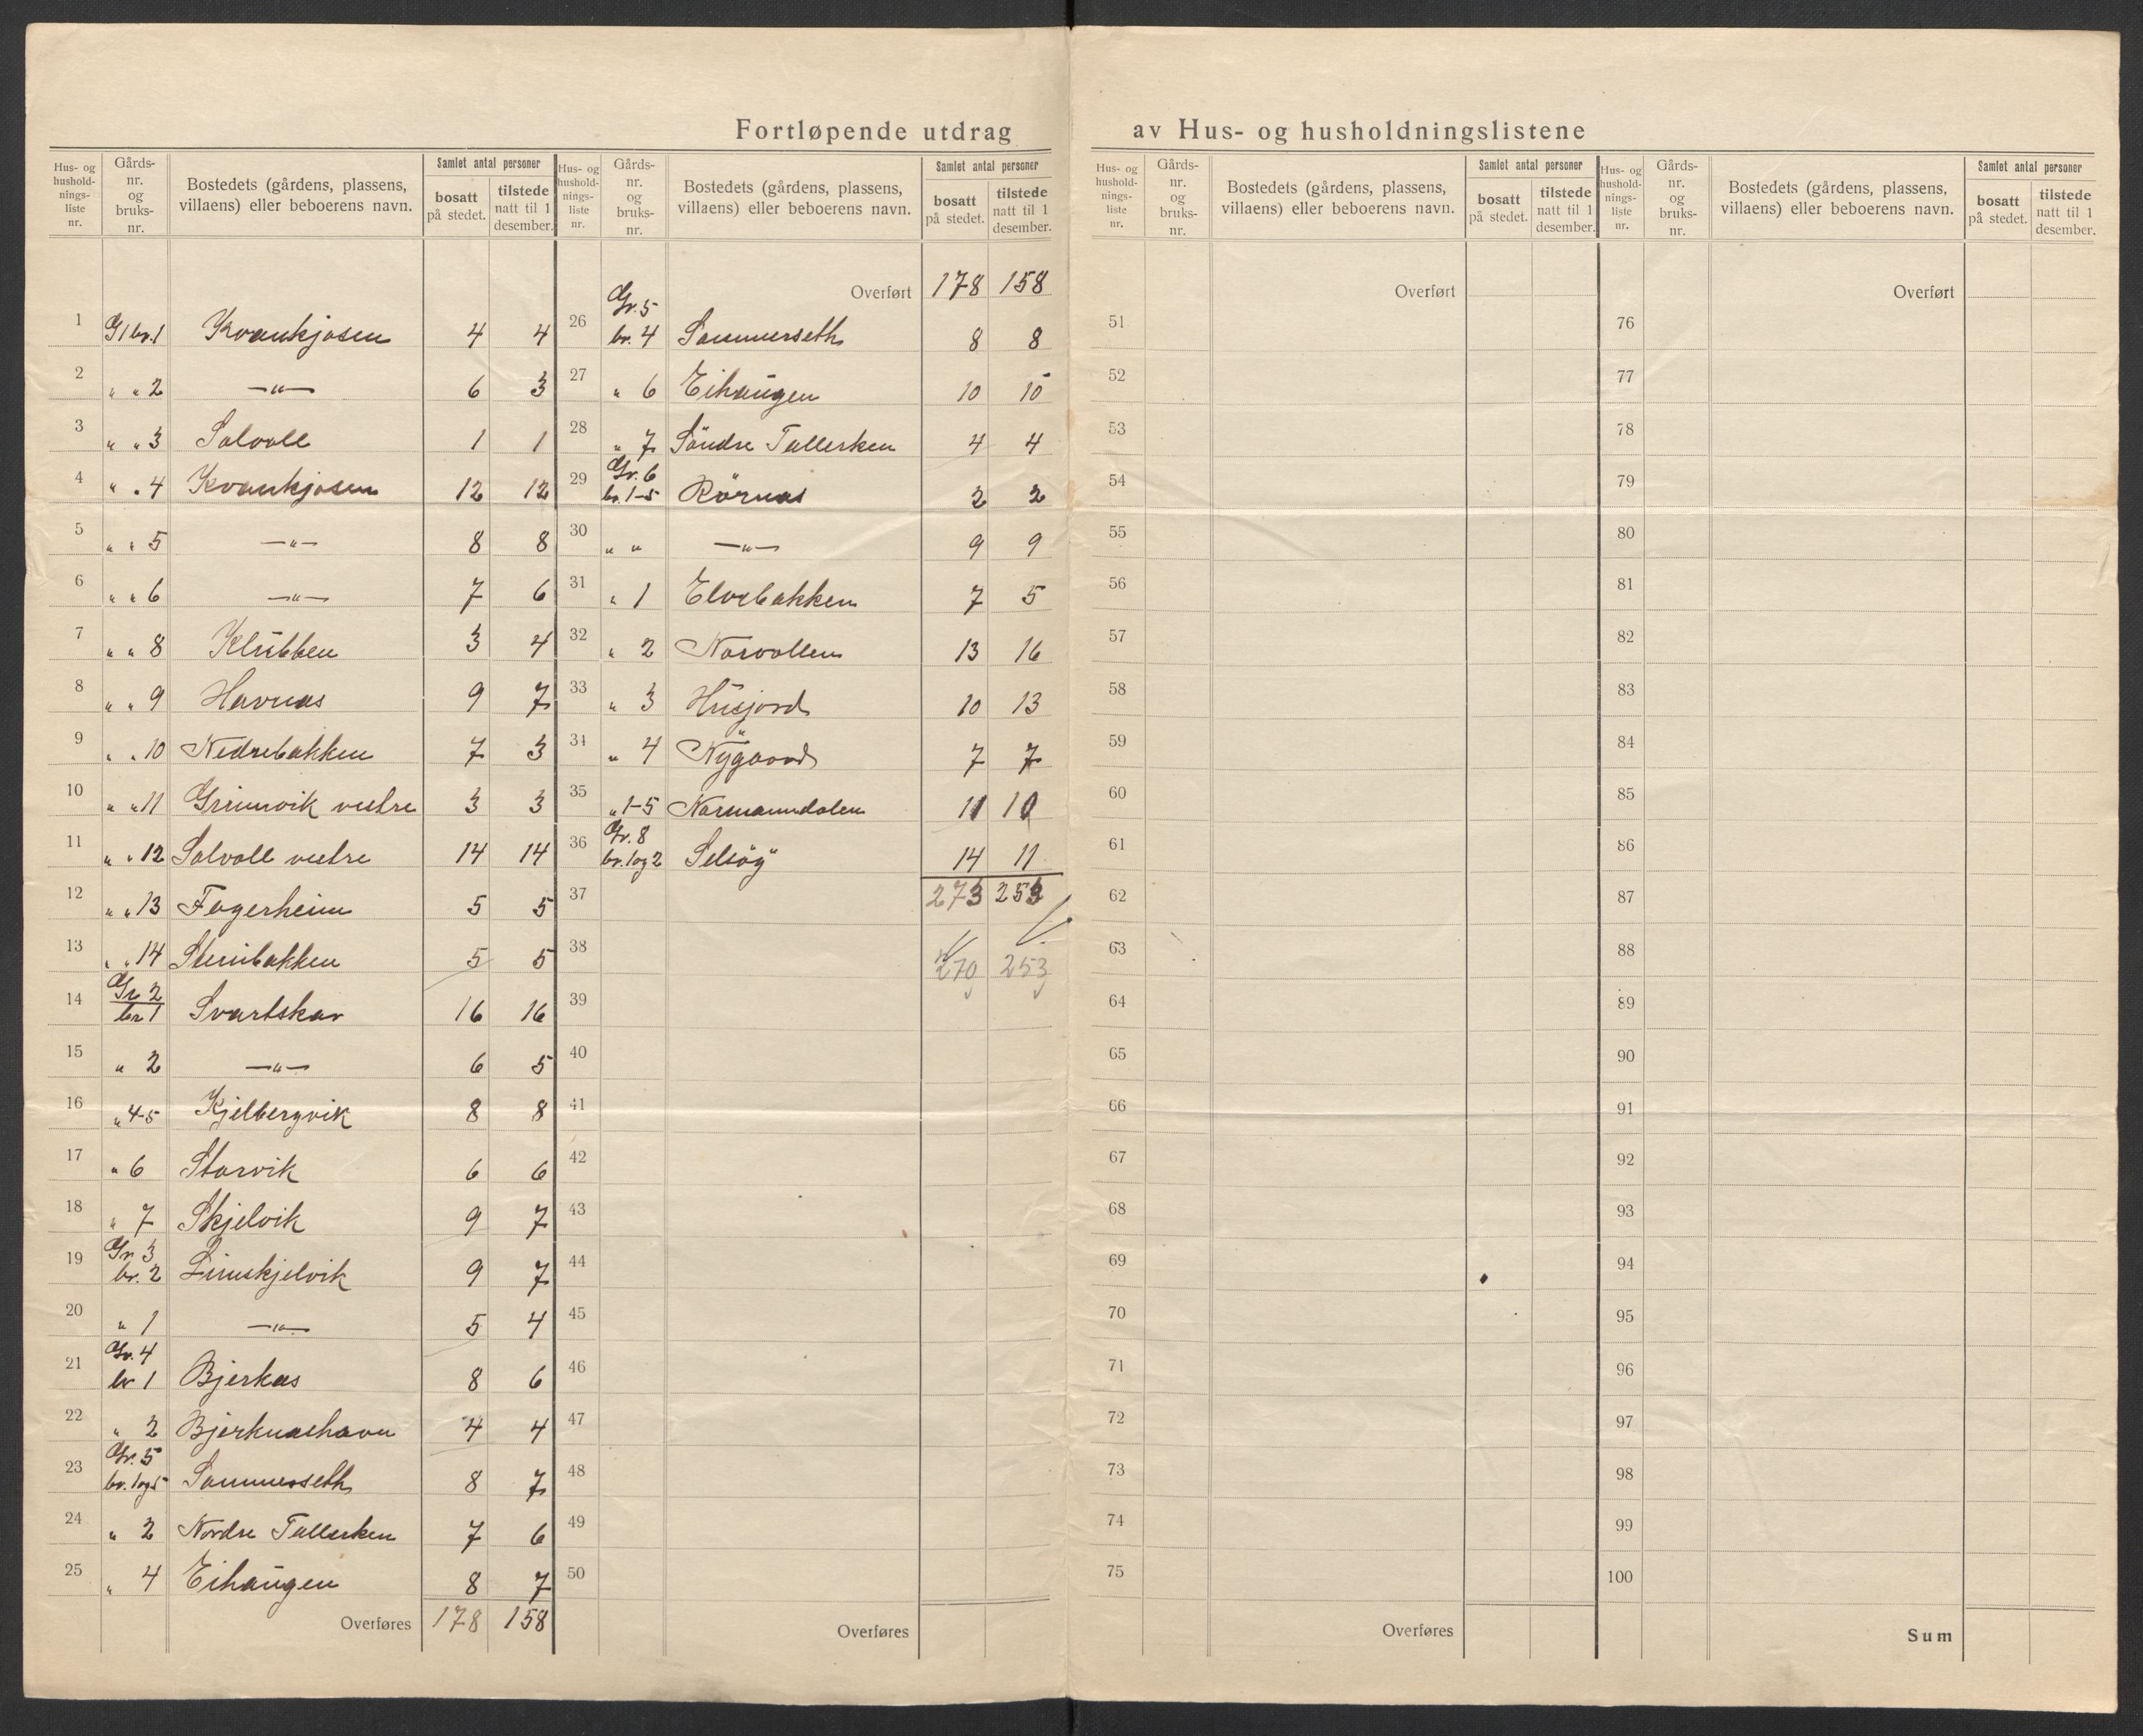 Fortløpende utdrag av Hus- og husholdningslistene
Hus- og hushold-nings-liste nr. Gårds-nr. og bruks-nr. Bostedets (gårdens, plassens, villaens) eller beboerens navn. Samlet antal personer bosatt på stedet. tilstede natt til 1 desember.
1 G 1 br. 1 Kvankjosen 4 4
2 " " 2 —"— 6 3
3 " " 3 Solvoll 1 1
4 " " 4 Kvankjosen 12 12
5 " " 5 —"— 8 8
6 " " 6 —"— 7 6
7 " " 8 Klubben 3 4
8 " " 9 Havnas 9 7
9 " " 10 Nedrebakken 7 3
10 " " 11 Grunvik vestre 3 3
11 " " 12 Solvoll vestre 14 14
12 " " 13 Fagerheim 5 5
13 " " 14 Steinbakken 5 5
14 Gr 2 br 1 Svartskar 16 16
15 " 2 —"— 6 5
16 " 4-5 Kjelbergvik 8 8
17 " 6 Storvik 6 6
18 " 7 Skjelvik 9 7
19 Gr. 3 br. 2 Linnskjelvik 9 7
20 " 1 —"— 5 4
21 Gr. 4 br 1 Bjerkas 8 6
22 " 2 Bjerknashavn 4 4
23 Gr. 5 br. 1 og 5 Sommerseth 8 7
24 " 2 Nordre Tallerken 7 6
25 " 4 Eihaugen 8 7
Overføres 178 158
Hus- og hushold-nings-liste nr. Gårds-nr. og bruks-nr. Bostedets (gårdens, plassens, villaens) eller beboerens navn. Samlet antal personer bosatt på stedet. tilstede natt til 1 desember.
Overført 178 158
26 Gr. 5 br. 4 Sommerseth 8 8
27 " 6 Eihaugen 10 10
28 " 7 Söndre Tallerken 4 4
29 Gr. 6 br. 1-5 Rörnas 2 2
30 " " —"— 9 9
31 " 1 Elvebakken 7 5
32 " 2 Norvollen 13 16
33 " 3 Husjord 10 13
34 " 4 Nygaard 7 7
35 " 1-5 Normanndalen 11 10
36 Gr. 8 br. 1 og 2 Selsöy 14 11
37 273 253
38 270 253
39
40
41
42
43
44
45
46
47
48
49
50
Overføres
Hus- og hushold-nings-liste nr. Gårds-nr. og bruks-nr. Bostedets (gårdens, plassens, villaens) eller beboerens navn. Samlet antal personer bosatt på stedet. tilstede natt til 1 desember.
Overført
51
52
53
54
55
56
57
58
59
60
61
62
63
64
65
66
67
68
69
70
71
72
73
74
75
Overføres
Hus- og hushold-nings-liste nr. Gårds-nr. og bruks-nr. Bostedets (gårdens, plassens, villaens) eller beboerens navn. Samlet antal personer bosatt på stedet. tilstede natt til 1 desember.
Overført
76
77
78
79
80
81
82
83
84
85
86
87
88
89
90
91
92
93
94
95
96
97
98
99
100
Sum